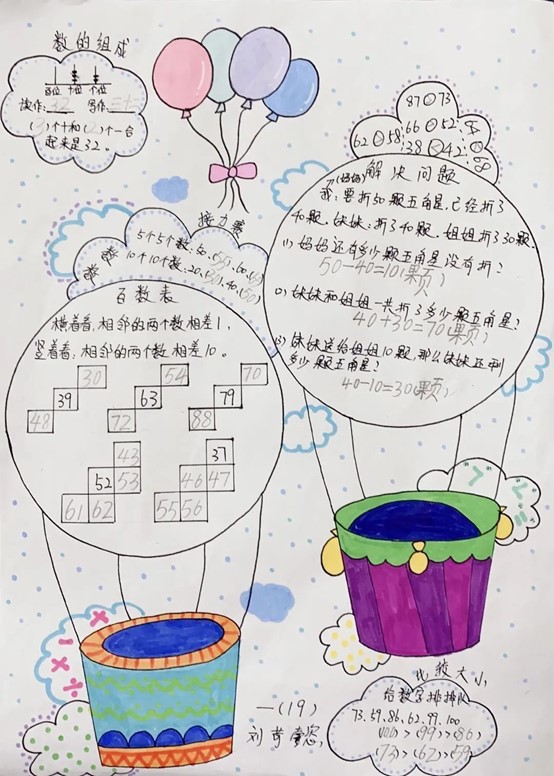 数的组成
百位 十位 个位
读作:32 写作:三十二
(3)个十和(2)个一合
起来是32。
接力赛
5个5个数:50,(55),60,(65)
10个10个数:20,(30),40,(50)
百数表
横着看,相邻的两个数相差1,
竖着看,相邻的两个数相差10。
30 54 70
39 63 79
48 72 88
43 37
52 53 46 47
61 62 55 56
87○73
62○58 66○52
38○42
解决问题
(妈妈)
我:要折50颗五角星,已经折了
40颗,妹妹:折了40颗,姐姐折了30颗,
(1)妈妈还有多少颗五角星没有折?
50-40=10(颗)
(2)妹妹和姐姐一共折了多少颗五角星?
40+30=70(颗)
(3)妹妹送给姐姐10颗,那么妹妹还剩
多少颗五角星?
40-10=30(颗)
"><"="
+ × - × ÷
一(19)
比较大小
给数字排排队
73、59、86、62、99、100
(100)>(99)>(86)
(73)>(62)>(59)